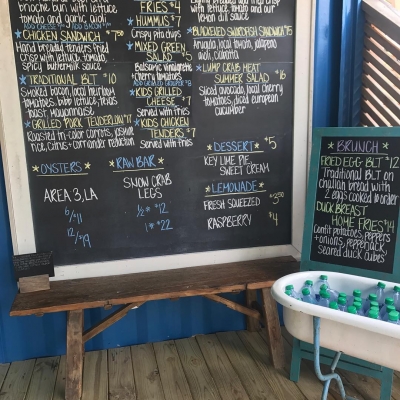 brioche bun with lettuce
tomato and garlic aioli
*CHICKEN SANDWICH* $7.50
Hand breaded tenders fried
crisp with lettuce, tomato,
spicy buttermilk sauce
*TRADITIONAL BLT* $10
Smoked bacon, local heirloom
tomatoes, bibb lettuce, texas
toast, mayonnaise
*GRILLED PORK TENDERLOIN* $17
Roasted tri-color carrots, jasmine
rice, citrus + corriander reduction
*OYSTERS*
AREA 3, LA
6/$11
12/$19
FRIES $4
*HUMMUS $7
Crispy pita chips
*MIXED GREEN
SALAD $5
Balsamic vinaigrette
cherry tomatoes
*KIDS GRILLED
CHEESE $7
Served with fries
*KIDS CHICKEN
TENDERS $7
Served with fries
*RAW BAR*
SNOW CRAB
LEGS
½# $12
1# $22
with lettuce, tomato and our
lemon dill sauce
*BLACKENED SWORDFISH SANDWICH $15
Arugula, local tomato, jalapeno
aioli, ciabatta
*LUMP CRAB MEAT
SUMMER SALAD $16
Sliced avocado, local cherry
tomatoes, diced european
cucumber
*DESSERT* $5
KEY LIME PIE,
SWEET CREAM
*LEMONADE*
FRESH SQUEEZED $3.50
RASPBERRY $4
*BRUNCH*
FRIED EGG BLT $12
Traditional BLT on
challah bread with
2 eggs cooked to order
DUCK BREAST
HOME FRIES $14
Confit potatoes, peppers
+ onions, pepperjack,
seared duck cubes